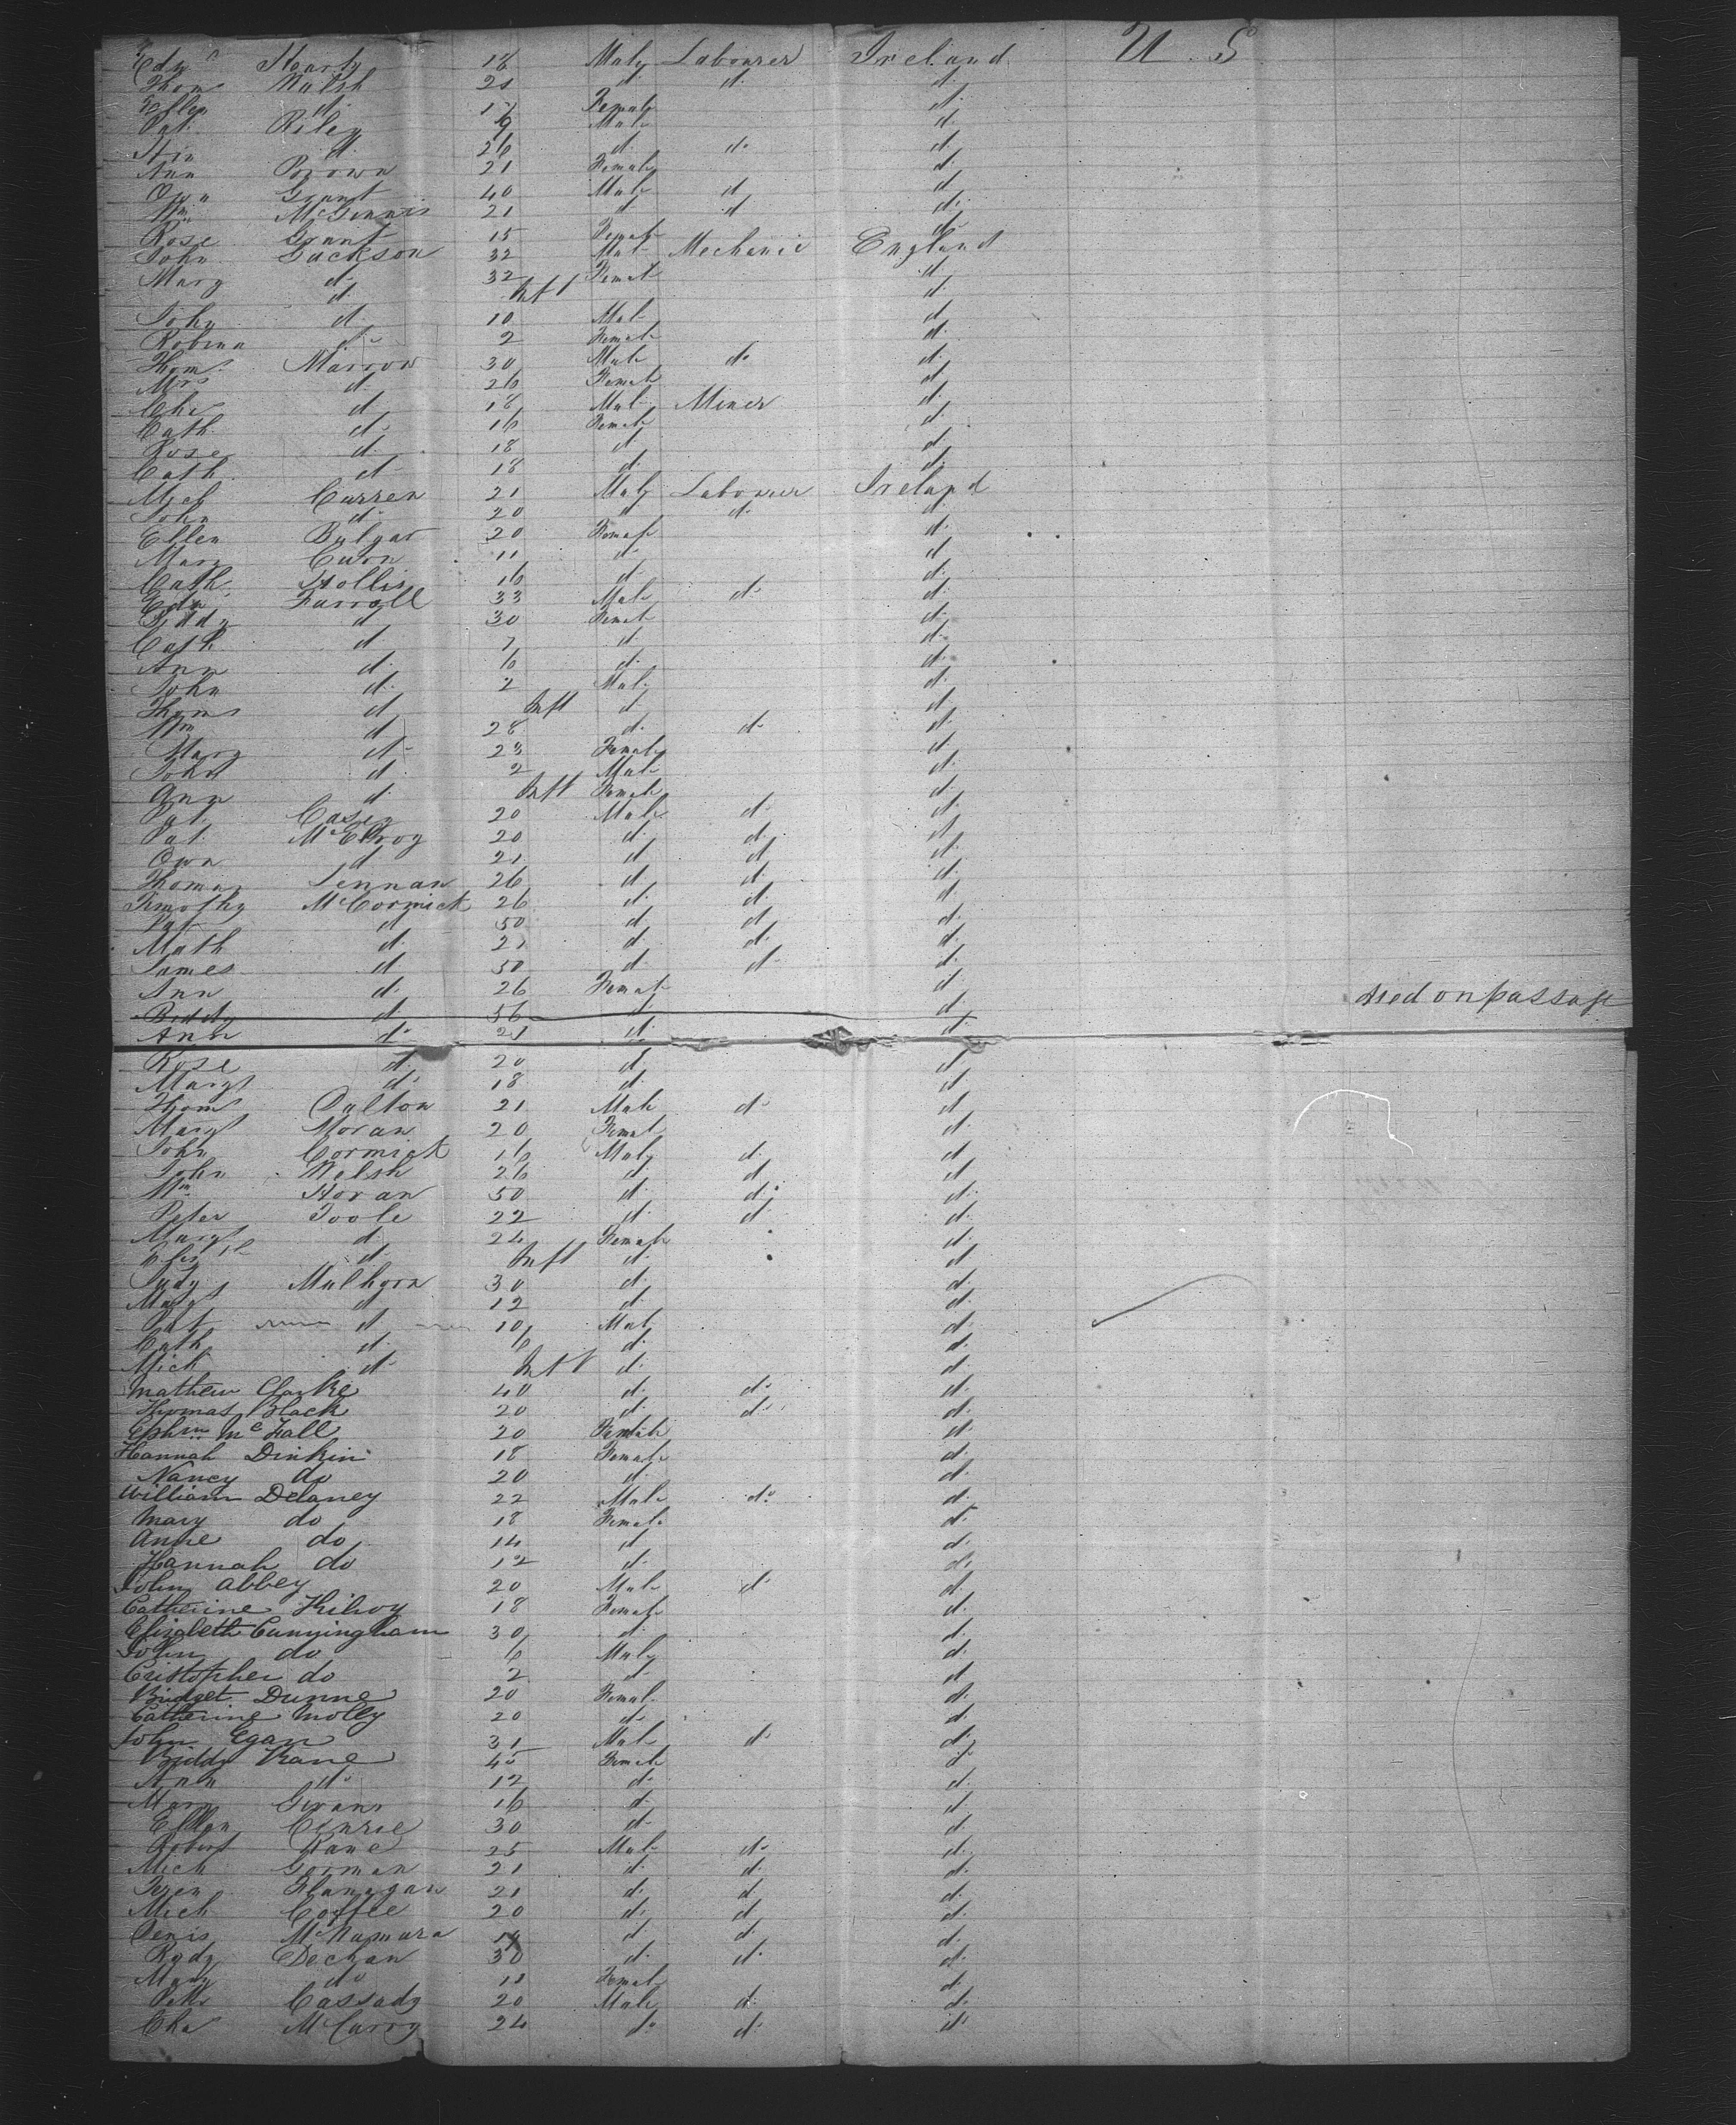 Edw Hearty 18 Male Labourer Ireland U. S
Thom Walsh 21 d d d
Ellen d 17 Female d
Pat Riley 9 Male d
d 26 d do d
Ann Brown 21 Female d
Own Grant 40 Male d d
Wm McGinnis 21 d d d
Rose Grant 15 Female d
John Jackson 32 Male Mechanic England
Mary d 32 Female d
d Inft d
John d 10 Male d
Robina d 2 Female d
Thom Marrow 30 Male do d
Mrs d 26 Female d
Chs d 18 Male Miner d
Cath d 16 Female d
Rose d 18 d d
Cath d 18 d d
Mich Curren 21 Male Labourer Ireland
John d 20 d d d
Ellen Bulgar 20 Female d
Mary Curn 11 d d
Cath Hollis 16 d d
Edw Farrall 33 Male do d
Biddy d 30 Female d
Cath d 7 d d
Ann d 6 d d
John d 2 Male d
Thoms d Inft d d
Wm d 28 d d d
Mary d 23 Female d
John d 2 Male d
Ann d Inft Female d
Pat Casey 20 Male d d
Pat McElroy 20 d d d
Own d 21 d d d
Thomas Lennan 26 d d d
Timothy McCormick 26 d d d
Pat d 50 d d d
Math d 21 d d d
James d 50 d d d
Ann d 26 Female d
Biddy d 56 d d died on passage
Ann do 21 d d
Rose d 20 d d
Margt d 18 d d
Thom Dalton 21 Male do d
Margt Moran 20 Female d
John Cormick 16 Male d d
John Welsh 26 d d d
Wm Horan 50 d d d
Peter Toole 22 d d d
Margt d 24 Female d
Elizth d Inft d d
Judy Mulhern 30 d d
Margt d 12 d d
Pat d 10 Male d
Cath d 6 d d
Mick d Inft d d
Mathew Clarke 40 d do d
Thomas Black 20 d do d
Ephm McFall 20 Female d
Hannah Dinkin 18 Female d
Nancy do 20 d d
William Delaney 22 Male do d
Mary do 18 Female d
Anne do 14 d d
Hannah do 12 d d
John Abbey 20 Male d d
Catherine Kilroy 18 Female d
Elizabeth Cunningham 30 d d
John do 6 Male d
Cristopher do 2 d d
Bridget Dunne 20 Female d
Catherine Molly 20 d d
John Egan 31 Male d d
Biddy Kane 45 Female d
Ann do 12 d d
Mary Girans 16 d d
Ellen Conrie 30 d d
Robert Kane 25 Male do d
Mich Gorman 21 d d d
Flanagan 21 d d d
Mich Coffee 20 d d d
Denis McNamara d d d
Rody Dechan 30 d d d
Mary do 11 Female d
Cassady 20 Male d d
Cha McCurry 24 do d d